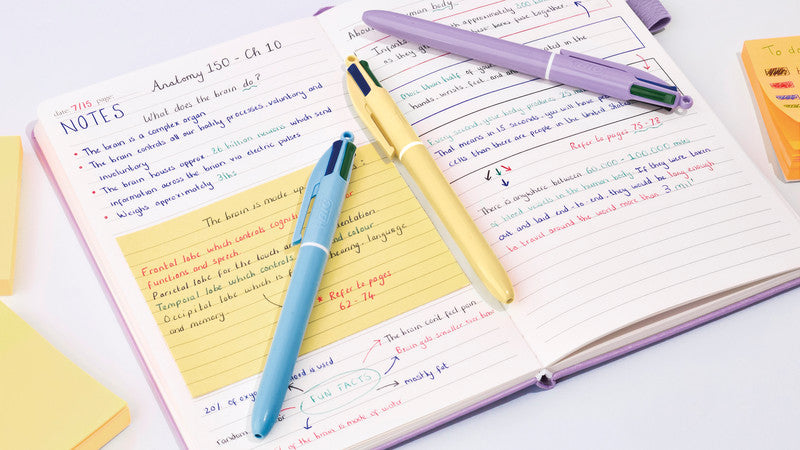 Anatomy 150 - Ch 10
date 7/15 page:
NOTES
What does the brain do?
• The brain is a complex organ
• The brain controls all our bodily processes, voluntary and
involuntary
• The brain houses approx. 86 billion neurons which send
information across the brain via electric pulses
• Weighs approximately 3lbs
The brain is made up
Frontal lobe which controls cognitive
functions and speech.
Parietal lobe for the touch and orientation
Temporal lobe which controls and colour
Occipital lobe which is hearing, language
and memory.
* Refer to pages
62 - 74
The brain can't feel pain
Brain gets smaller over time
mostly fat
FUN FACTS
20% of oxygen blood is used
random
% of the brain is made of water
About human body
with approximately 300 bones
Infants
as they grow these bones fuse together.
More than half of your located in the
hands, wrists, feet, and
Every second, your body produces 25
That means in 15 seconds, you will have
cells than there are people in the United States
Refer to pages 75 - 78
There is anywhere between 60,000 - 100,000 miles
of blood vessels in the human body. If they were taken
out and laid end-to-end, they would be long enough
to travel around the world more than 3
BIC
To do